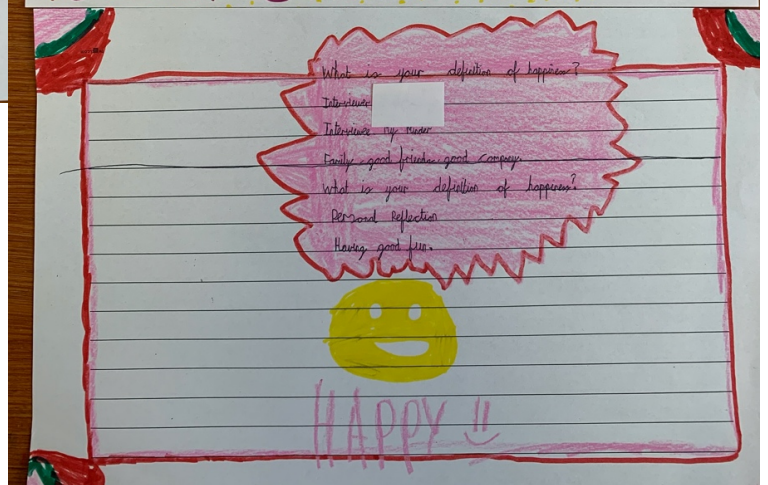 What is your definition of happiness?
Interviewer
Interviewee My Minder
Family good friends good company.
What is your definition of happiness?
Personal Reflection
Having good fun.
HAPPY